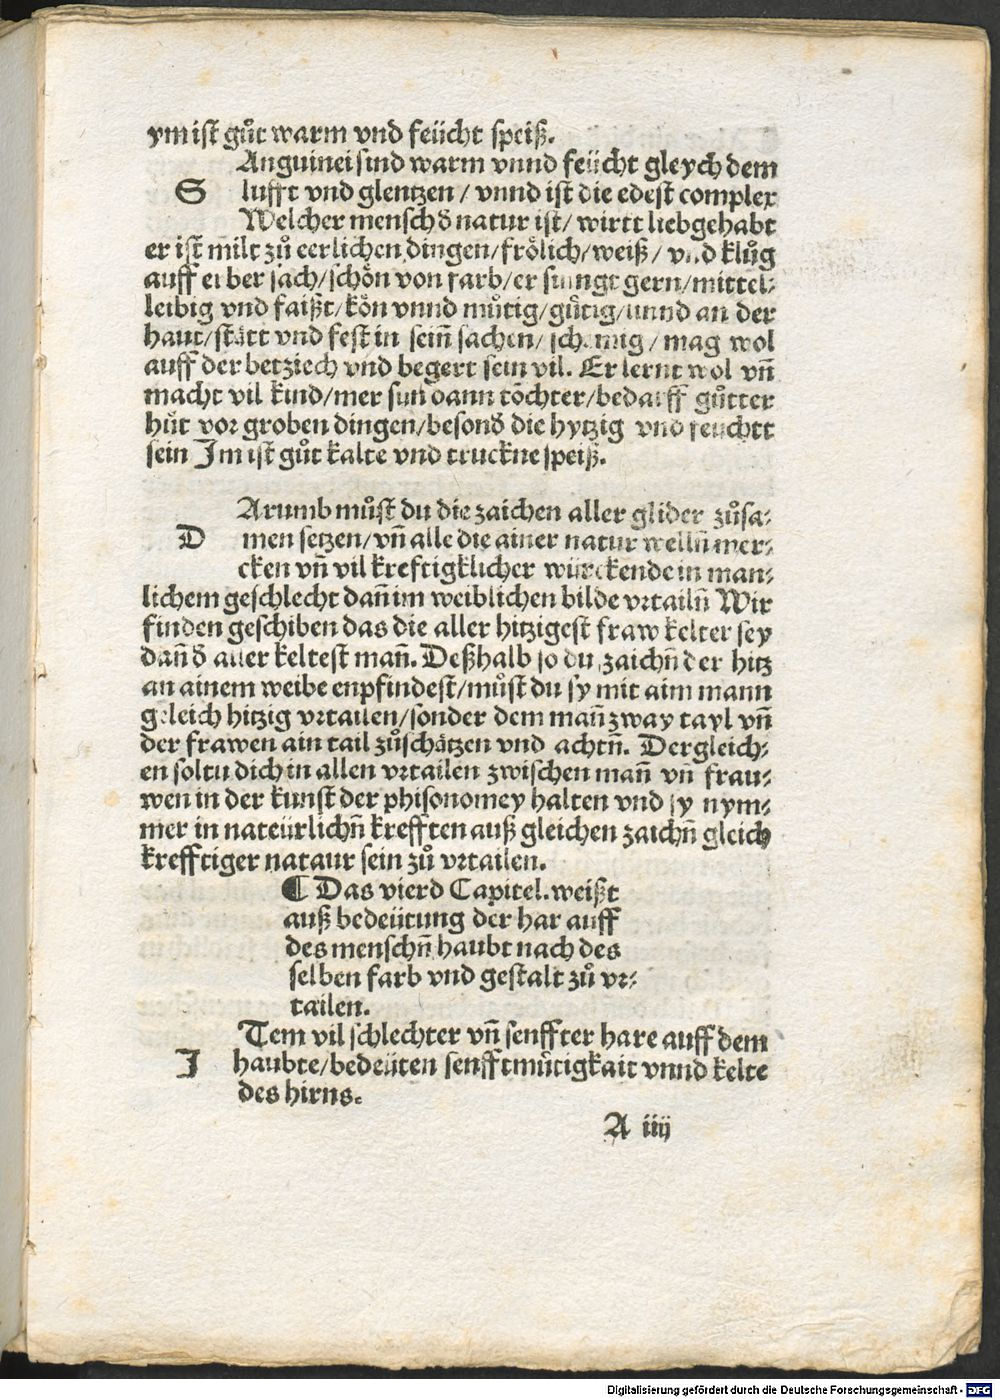 ym ist gůt warm vnd feücht speiß.
Anguinei sind warm vnnd feücht gleych dem
S lufft vnd glentzen / vnnd ist die edest complex
Welcher mensch d̕ natur ist / wirtt liebgehabt
er ist milt zů eerlichen dingen / frölich / weiß / vnd klůg
auff erber sach / schön von farb / er singt gern / mittel⸗
leibig vnd faißt / kön vnnd můtig / gůtig / vnnd an der
haut / stått vnd fest in sein̄ sachen / mag wol
auff der betziech vnd begert sein vil. Er lernt wol vn̄
macht vil kind / mer sun dann töchter / bedarff gůtter
hůt vor groben dingen / besond̕ die hytzig vnd feuchtt
sein Im ist gůt kalte vnd truckne speiß.
Arumb můst du die zaichen aller glider zůsa⸗
D men setzen / vn̄ alle die ainer natur welln̄ mer⸗
cken vn̄ vil kreftigklicher würckende in man⸗
lichem geschlecht dan̄ im weiblichen bilde vrtailn̄ Wir
finden geschiben das die aller hitzigest fraw kelter sey
dan̄ d̕ aller keltest man̄. Deßhalb so du zaichn̄ der hitz
an ainem weibe enpfindest / můst du sy mit aim mann
geleich hitzig vrtailen / sonder dem man̄ zway tayl vn̄
der frawen ain tail zůschätzen vnd achtn̄. Dergleich⸗
en soltu dich in allen vrtailen zwischen man̄ vn̄ frau⸗
wen in der kunst der phisonomey halten vnd sy nym⸗
mer in nateürlichn̄ krefften auß gleichen zaichn̄ gleich
krefftiger nataur sein zů vrtailen.
¶ Das vierd Capitel. weißt
auß bedeütung der har auff
des menschn̄ haubt nach des
selben farb vnd gestalt zů vr⸗
tailen.
Tem vil schlechter vn̄ senffter hare auff dem
I haubte / bedeüten senfftmůtigkait vnnd kelte
des hirns.
A iiij
Digitalisierung gefördert durch die Deutsche Forschungsgemeinschaft - DFG